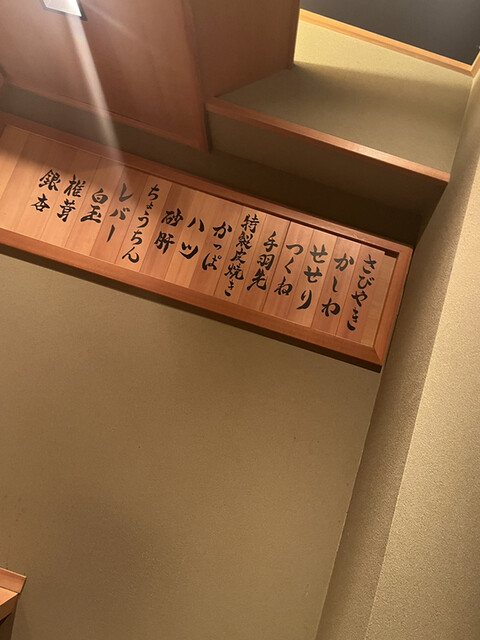 さびやき
かしわ
せせり
つくね
手羽先
特製皮焼き
かっぱ
ハツ
砂肝
ちょうちん
レバー
白玉
椎茸
銀杏